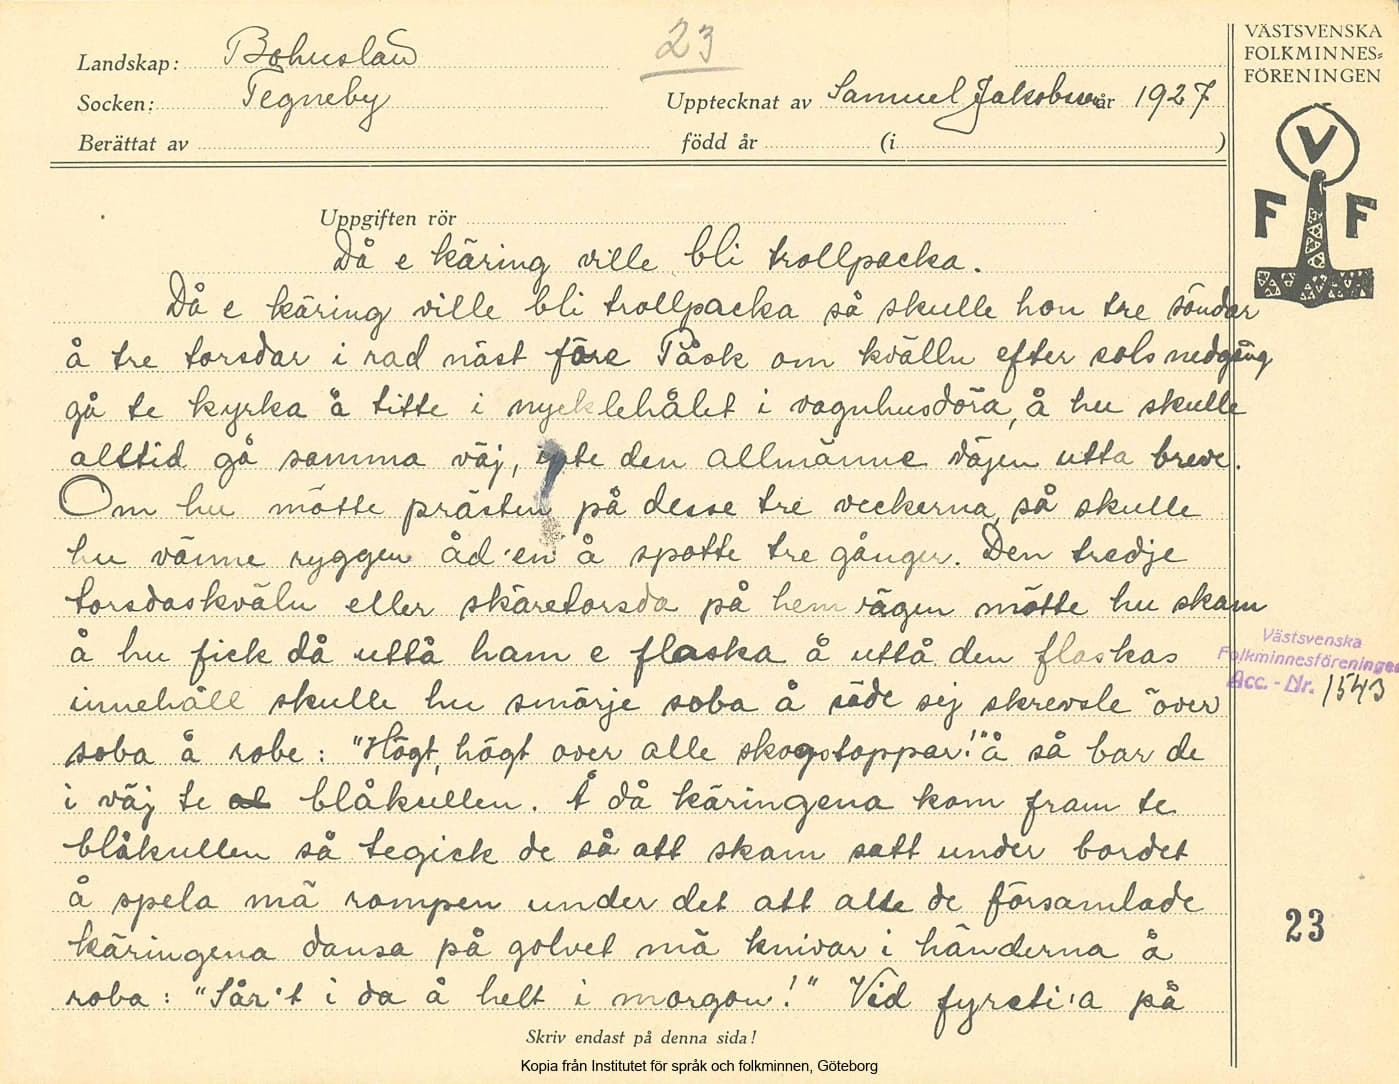 23
Landskap: Bohuslän
Socken: Tegneby
Upptecknat av Samuel Jakobsson år 1927
Berättat av
född år (i )
VÄSTSVENSKA
FOLKMINNES=
FÖRENINGEN
V
F F
Uppgiften rör
Då e käring ville bli trollpacka.
Då e käring ville bli trollpacka så skulle hon tre söndar
å tre torsdar i rad näst före Påsk om kvälln efter sols nedgång
gå te kyrka å titte i nyeklehålet i vagnhusdöra, å hu skulle
alltid gå samma väj, inte den allmänne väjen utta breve.
Om hu mötte prästen på desse tre veckerna så skulle
hu vänne ryggen åd'en å spotte tre gånger. Den tredje
torsdaskväln eller skäretorsda på hemvägen mötte hu skam
å hu fick då uttå ham e flaska å uttå den flaskas
innehåll skulle hu smörje soba å säde sej skrevsle över
soba å robe: "Högt, högt over alle skogstoppar!" å så bar de
i väj te blåkullen. Å då käringena kom fram te
blåkullen så tegick de så att skam satt under bordet
å spela mä rompen under det att alle de församlade
käringena dansa på golvet mä knivar i händerna å
roba: "Sår't i da å helt i morgon!" Vid fyreti'a på
Skriv endast på denna sida!
Västsvenska
Folkminnesföreningen
Acc. - Nr. 1543
23
Kopia från Institutet för språk och folkminnen, Göteborg